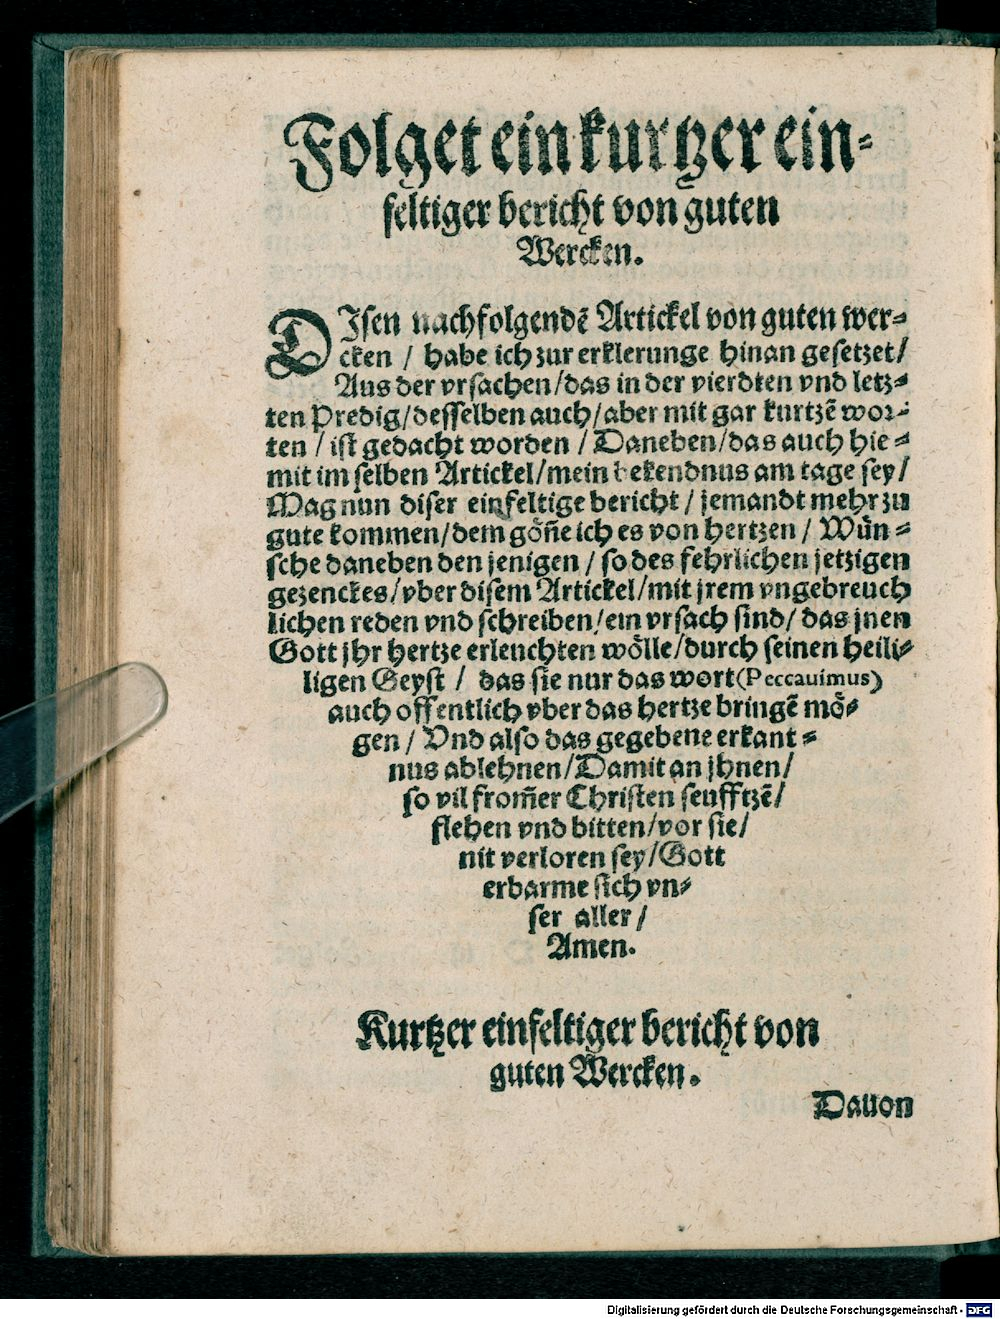 Folget ein kurtzer ein-
feltiger bericht von guten
Wercken.
DIsen nachfolgendẽ Artickel von guten wer-
cken / habe ich zur erklerunge hinan gesetzet /
Aus der vrsachen / das in der vierdten vnd letz-
ten Predig / desselben auch / aber mit gar kurtzẽ wor-
ten / ist gedacht worden / Daneben / das auch hie-
mit im selben Artickel / mein bekendnus am tage sey /
Mag nun diser einfeltige bericht / jemandt mehr zu
gute kommen / dem gön̄e ich es von hertzen / Wün-
sche daneben den jenigen / so des fehrlichen jetzigen
gezenckes / vber disem Artickel / mit jrem vngebreuch
lichen reden vnd schreiben / ein vrsach sind / das jnen
Gott jhr hertze erleuchten wölle / durch seinen heili-
ligen Geyst / das sie nur das wort (Peccauimus)
auch offentlich vber das hertze bringẽ mö-
gen / Vnd also das gegebene erkant-
nus ablehnen / Damit an jhnen /
so vil from̄er Christen seufftzẽ /
flehen vnd bitten / vor sie /
nit verloren sey / Gott
erbarme sich vn-
ser aller /
Amen.
Kurtzer einfeltiger bericht von
guten Wercken.
Dauon
Digitalisierung gefördert durch die Deutsche Forschungsgemeinschaft - DFG